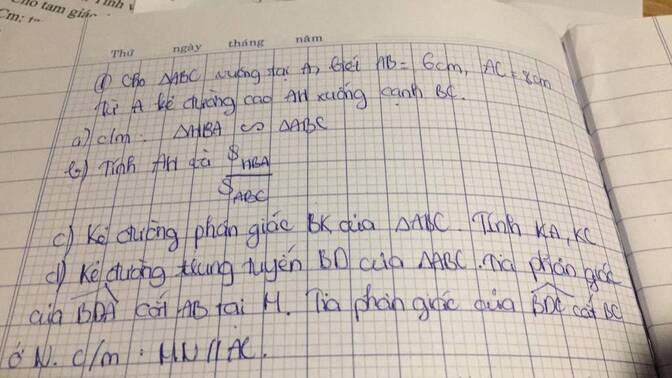 Cho tam giác
Cm:
Thứ ngày tháng năm
① Cho ΔABC vuông tại A, biết AB = 6cm, AC = 8cm
Từ A kẻ đường cao AH xuống cạnh BC.
a) c/m: ΔHBA ∽ ΔABC
b) Tính AH và S_HBA / S_ABC
c) Kẻ đường phân giác BK của ΔABC. Tính KA, KC
d) Kẻ đường trung tuyến BD của ΔABC. Tia phân giác
của BDA cắt AB tại M. Tia phân giác của BDC cắt BC
ở N. c/m: MN // AC.